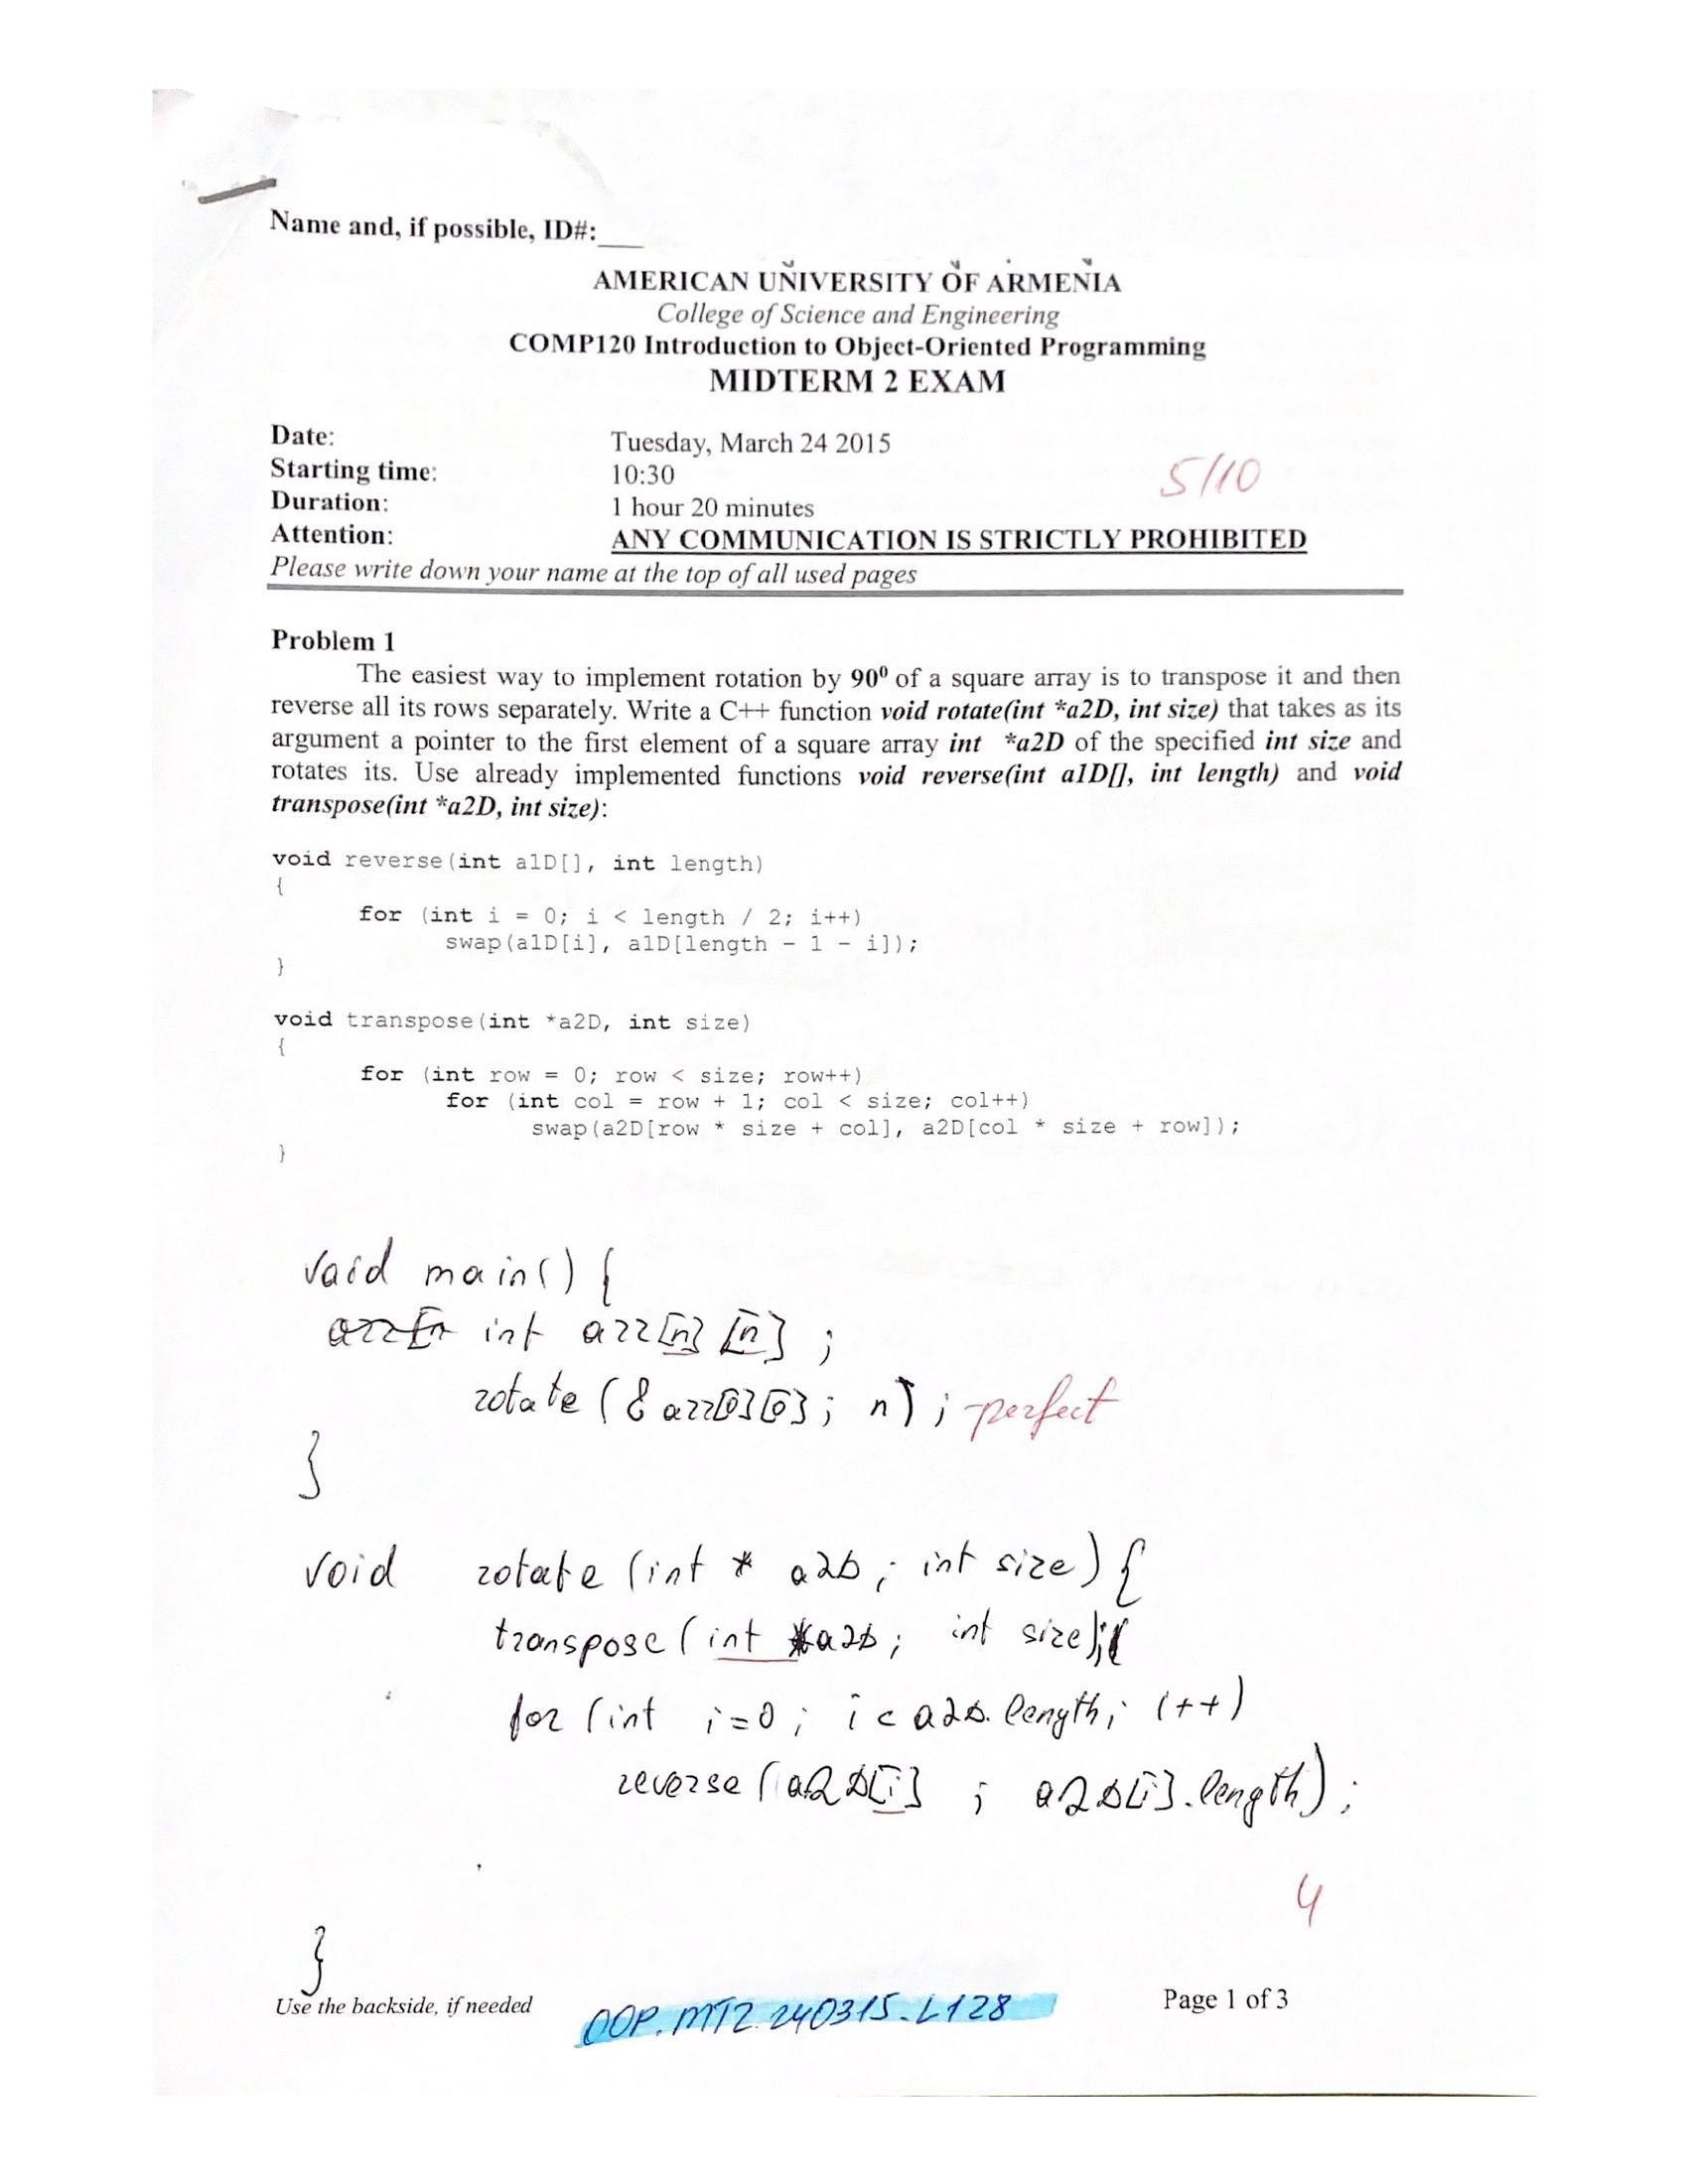 Name and, if possible, ID#:___
AMERICAN UNIVERSITY OF ARMENIA
College of Science and Engineering
COMP120 Introduction to Object-Oriented Programming
MIDTERM 2 EXAM
Date: Tuesday, March 24 2015
Starting time: 10:30
5/10
Duration: 1 hour 20 minutes
Attention: ANY COMMUNICATION IS STRICTLY PROHIBITED
Please write down your name at the top of all used pages
Problem 1
The easiest way to implement rotation by 90⁰ of a square array is to transpose it and then
reverse all its rows separately. Write a C++ function void rotate(int *a2D, int size) that takes as its
argument a pointer to the first element of a square array int *a2D of the specified int size and
rotates its. Use already implemented functions void reverse(int a1D[], int length) and void
transpose(int *a2D, int size):
void reverse(int a1D[], int length)
{
for (int i = 0; i < length / 2; i++)
swap(a1D[i], a1D[length - 1 - i]);
}
void transpose(int *a2D, int size)
{
for (int row = 0; row < size; row++)
for (int col = row + 1; col < size; col++)
swap(a2D[row * size + col], a2D[col * size + row]);
}
void main() {
int arr[n][n];
rotate (&arr[0][0]; n); -perfect
}
void rotate (int * a2D; int size) {
transpose (int *a2D; int size);
for (int i=0; i < a2D.length; i++)
reverse (a2D[i] ; a2D[i].length);
4
}
Use the backside, if needed
OOP.MT2.240315.L128
Page 1 of 3